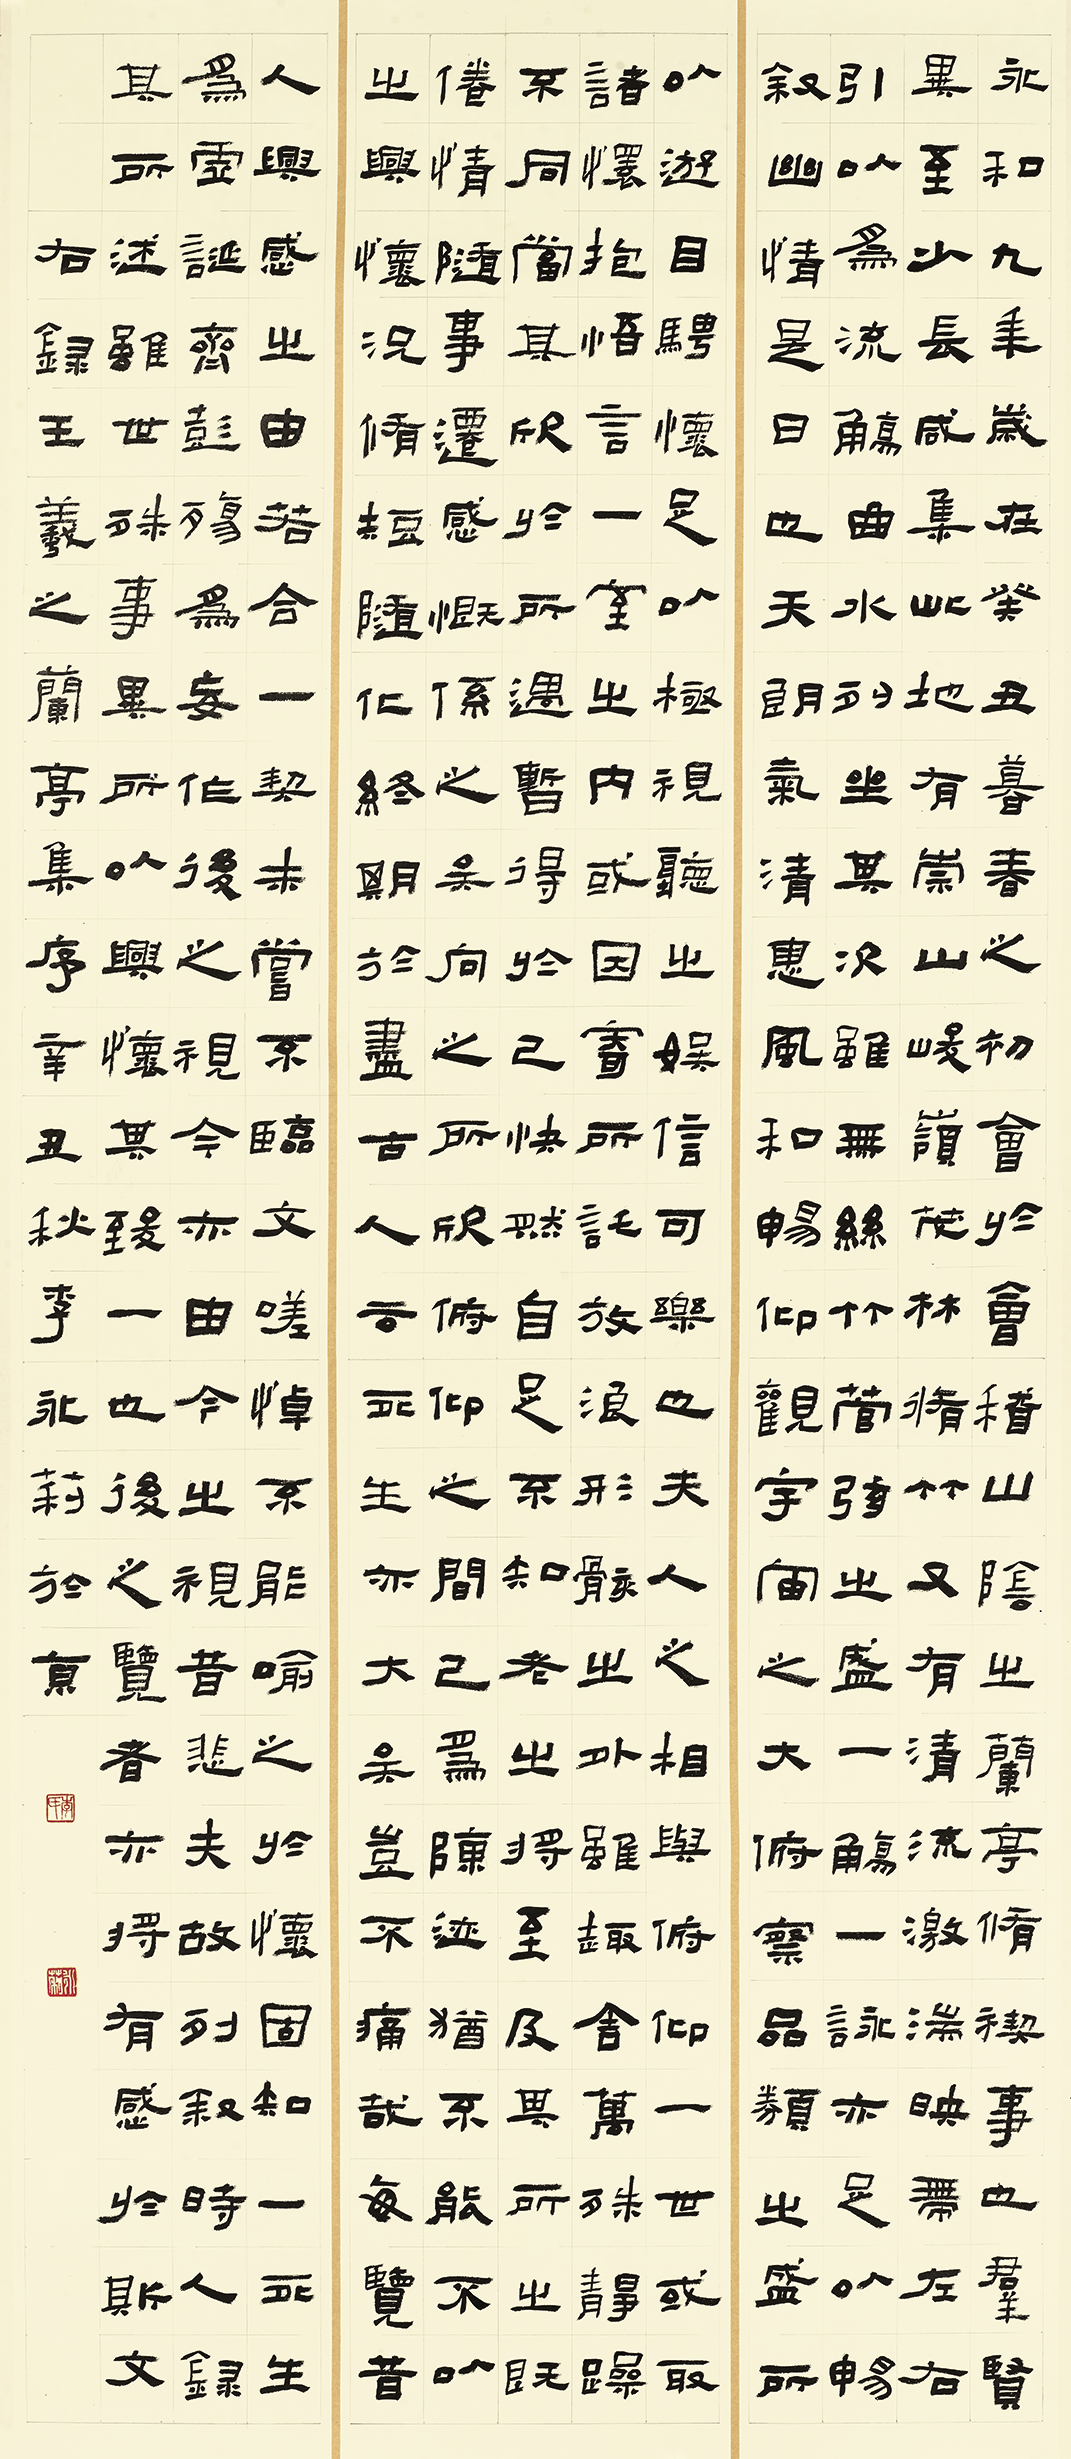 永和九年歲在癸丑暮春之初會於會稽山陰之蘭亭脩禊事也羣賢
畢至少長咸集此地有崇山峻嶺茂林脩竹又有清流激湍映帶左右
引以爲流觴曲水列坐其次雖無絲竹管弦之盛一觴一詠亦足以暢
叙幽情是日也天朗氣清惠風和暢仰觀宇宙之大俯察品類之盛所
以遊目騁懷足以極視聽之娛信可樂也夫人之相與俯仰一世或取
諸懷抱悟言一室之内或因寄所託放浪形骸之外雖趣舍萬殊靜躁
不同當其欣於所遇暫得於己快然自足不知老之將至及其所之既
倦情隨事遷感慨係之矣向之所欣俯仰之間已爲陳迹猶不能不以
之興懷況脩短隨化終期於盡古人云死生亦大矣豈不痛哉每覽昔
人興感之由若合一契未嘗不臨文嗟悼不能喻之於懷固知一死生
爲虛誕齊彭殤爲妄作後之視今亦由今之視昔悲夫故列叙時人錄
其所述雖世殊事異所以興懷其致一也後之覽者亦將有感於斯文
右錄王羲之蘭亭集序辛丑秋李永莉於京